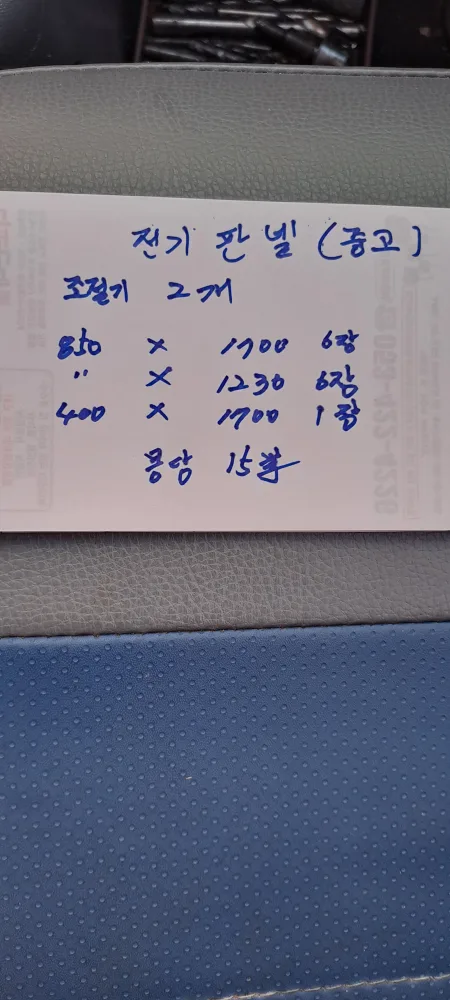 전기 판넬 (중고)
조절기 2개
850 × 1700 6장
〃 × 1230 6장
400 × 1700 1장
몽땅 15